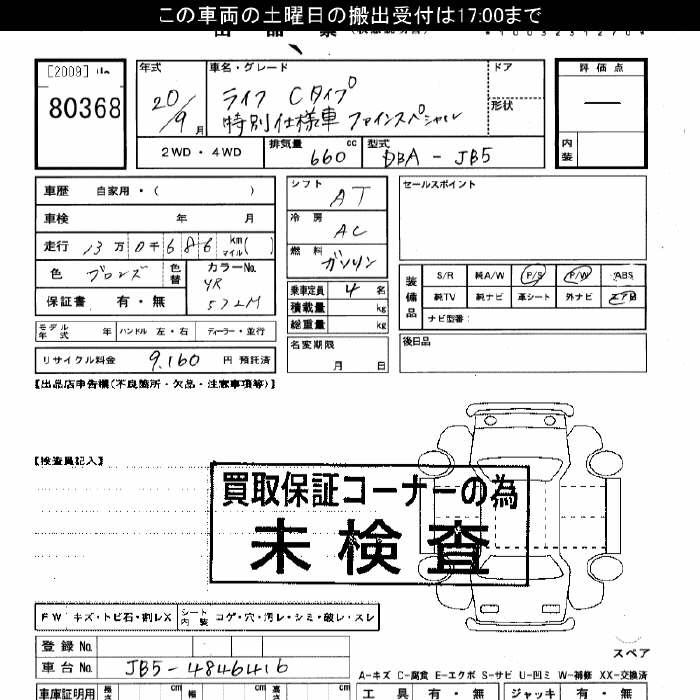 この車両の土曜日の搬出受付は17:00まで
[2009]
80368
年式
20/9月
車名・グレード
ライフ Cタイプ
特別仕様車 ファインスペシャル
ドア
形状
評価点
内装
2WD・4WD
排気量 660 cc
型式 DBA-JB5
車歴 自家用・( )
車検 年 月
走行 13万0千686 km マイル( )
色 ブロンズ 色替
カラーNo. YR572M
保証書 有・無
シフト AT
冷房 AC
燃料 ガソリン
乗車定員 4名
積載量 kg
総重量 kg
セールスポイント
装備品
S/R 純A/W P/S P/W ABS
純TV 純ナビ 革シート 外ナビ エアB
ナビ型番:
モデル年式 年 ハンドル 左・右 ディーラー・並行
リサイクル料金 9,160 円 預託済
名変期限 月 日
後日品
【出品店申告欄(不良箇所・欠品・注意事項等)】
【検査員記入】
買取保証コーナーの為
未検査
FW キズ・トビ石・割レX
シート内装 コゲ・穴・汚レ・シミ・破レ・スレ
登録No.
車台No. JB5-4846416
スペア
A-キズ C-腐食 E-エクボ S-サビ U-凹ミ W-補修 XX-交換済
車庫証明用 長さ cm 幅 cm 高さ cm
工具 有・無 ジャッキ 有・無